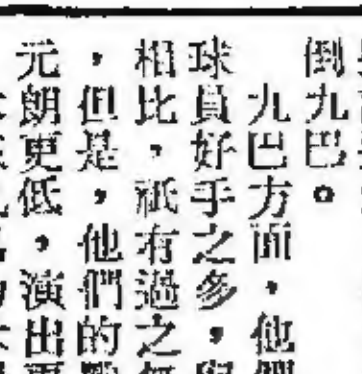 倒九巴。
九巴方面，他們
球員好手之多，與
相比，祇有過之
，但是，他們的
元朗更低，演出